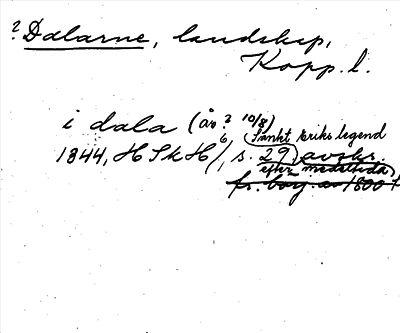 ? Dalarne, landskap,
Kopp. l.
i dala (år? 10/8)
6 (Sankt Eriks legend
1844, HSkH /, s. 29) avskr.
efter medeltida)
fr. börj. av 1800-t